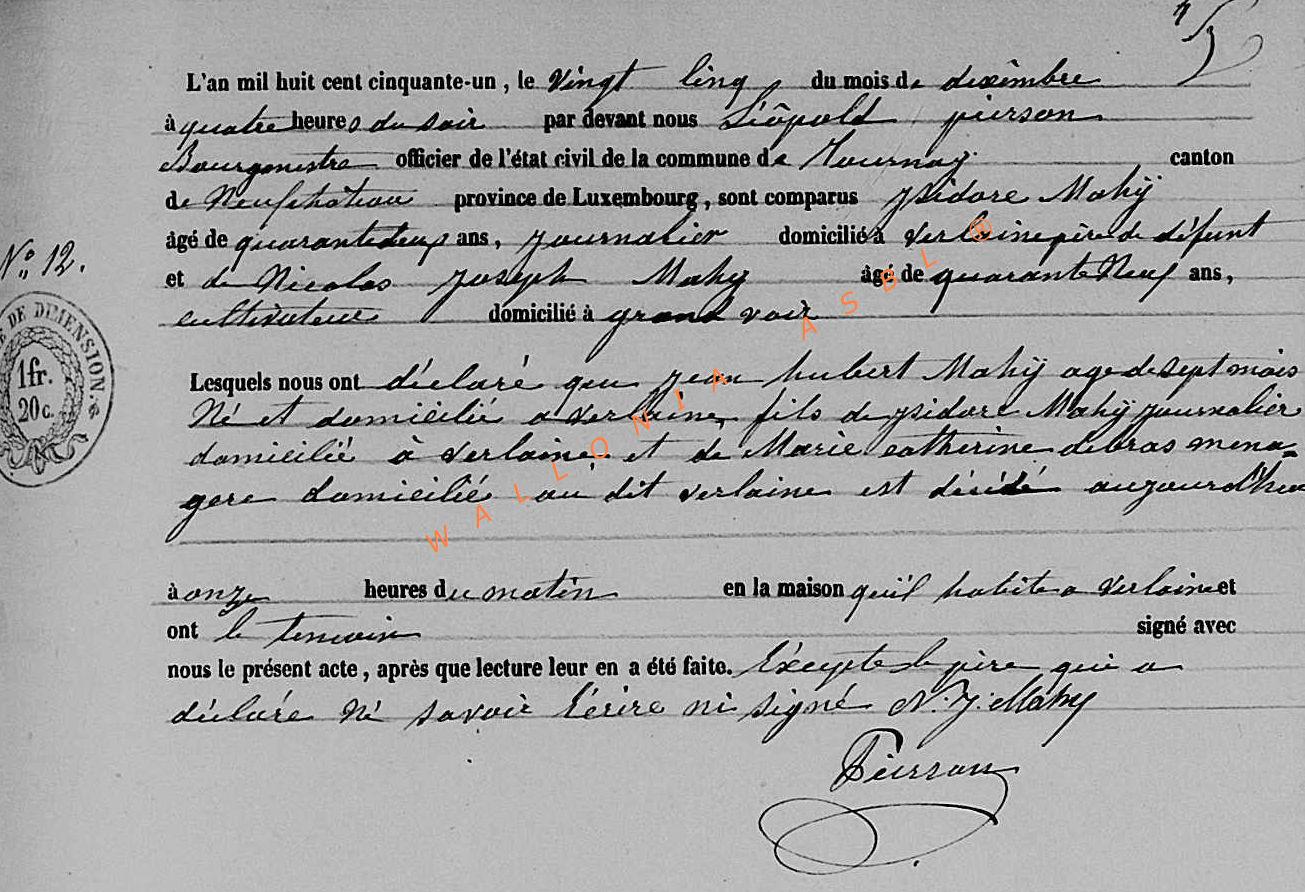 L'an mil huit cent cinquante-un, le Vingt Cinq du mois de decembre
à quatre heures du soir par devant nous Léopold pierson
Bourgmestre officier de l'état civil de la commune de Tournay canton
de Neufchâteau province de Luxembourg, sont comparus ysidore Mahÿ
âgé de quarante deux ans, Journalier domicilié à Verlaine père de défunt
N° 12.
et de Nicolas Joseph Mahy âgé de quarante Neuf ans,
cultivateur domicilié à grand voir
DE DIMENSION.
1fr.
20c.
Lesquels nous ont déclaré que Jean hubert Mahÿ age de sept mois
Né et domicilié a verlaine, fils de ysidore Mahÿ Journalier
domicilié à verlaine et de Marie catherine debras mena-
gere domicilié au dit verlaine est décédé aujourd'hui
à onze heures du matin en la maison qu'il habite a verlaine et
ont le temoin signé avec
nous le présent acte, après que lecture leur en a été faite. Excepte le père qui a
déclaré Né savoir Ecrire ni signé N. J. Mahy
Pierson
WALLONIA ASBL ®